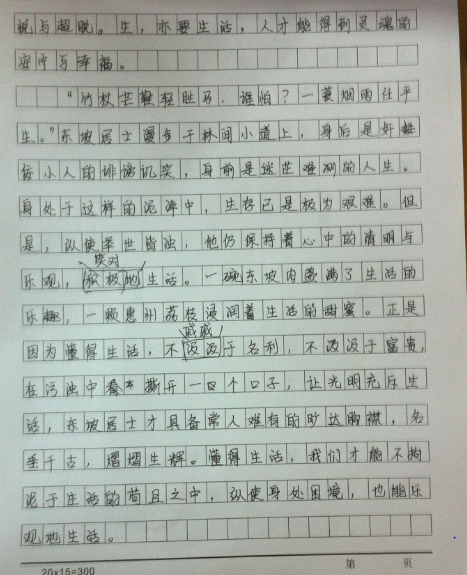 说与超脱。生，亦要生活，人才能得到灵魂的
安宁与幸福。
“竹杖芒鞋轻胜马，谁怕？一蓑烟雨任平
生。”东坡居士漫步于林间小道上，身后是奸
佞小人的诽谤讥笑，身前是迷茫难测的人生。
身处于这样的泥潭中，生存已是极为艰难。但
是，纵使举世皆浊，他仍保持着心中的清明与
笑对
乐观，积极地生活。一碗东坡肉盛满了生活的
乐趣，一颗惠州荔枝浸润着生活的甜蜜。正是
戚戚
因为懂得生活，不汲汲于名利，不汲汲于富贵，
在污浊中撕开一个口子，让光明充斥生
活，东坡居士才具备常人难有的旷达胸襟，名
垂千古，熠熠生辉。懂得生活，我们才能不拘
泥于生活的苟且之中，纵使身处困境，也能乐
观地生活。
20×15=300 第 页